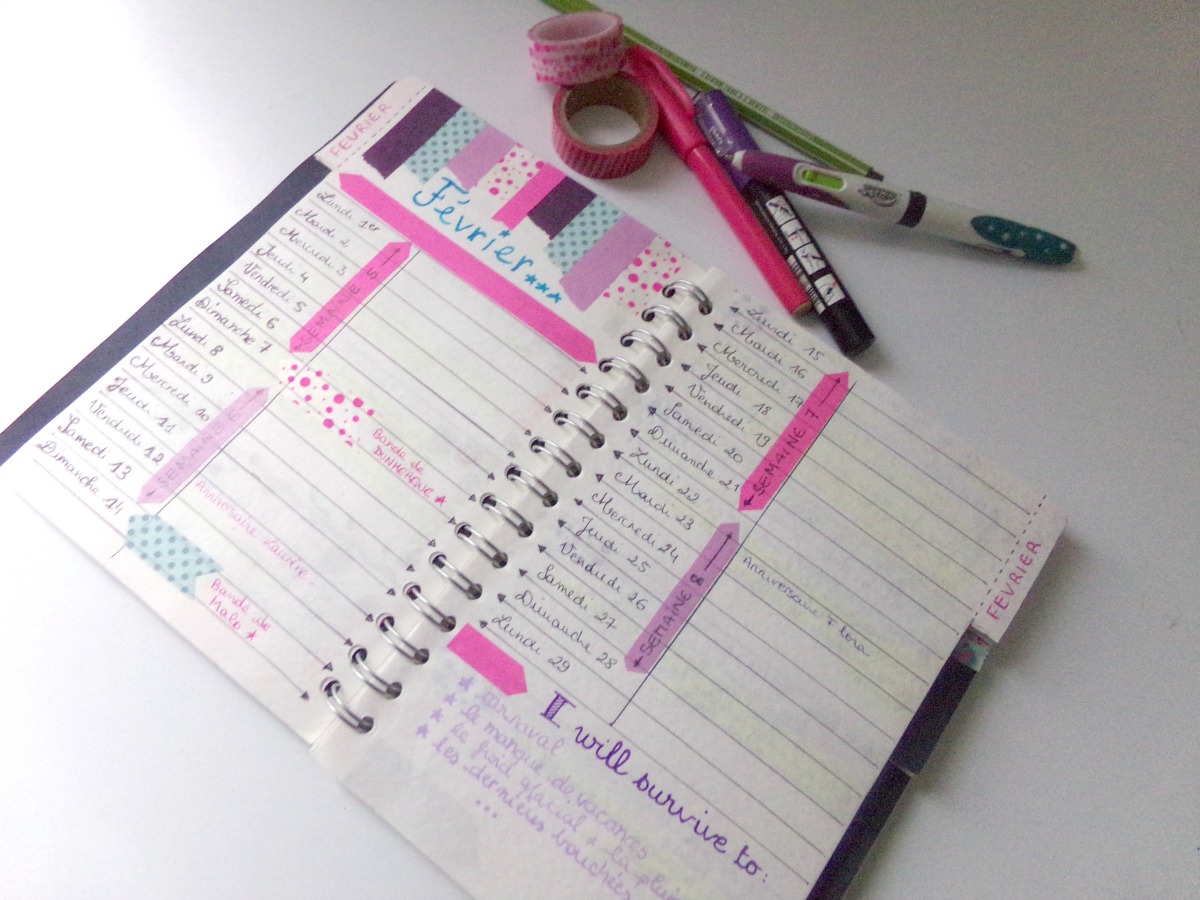 FEVRIER
Février
Lundi 1er
Mardi 2
Mercredi 3
Jeudi 4
Vendredi 5
Samedi 6
Dimanche 7
Lundi 8
Mardi 9
Mercredi 10
Jeudi 11
Vendredi 12
Samedi 13
Dimanche 14
SEMAINE 5
SEMAINE
Bande de
DUNKERQUE
Anniversaire
Bande de
Malo
Lundi 15
Mardi 16
Mercredi 17
Jeudi 18
Vendredi 19
Samedi 20
Dimanche 21
Lundi 22
Mardi 23
Mercredi 24
Jeudi 25
Vendredi 26
Samedi 27
Dimanche 28
Lundi 29
SEMAINE 7
SEMAINE 8
Anniversaire
FEVRIER
I will survive to:
carnaval
le manque de vacances
le froid glacial + la pluie
les dernières bouchées
...